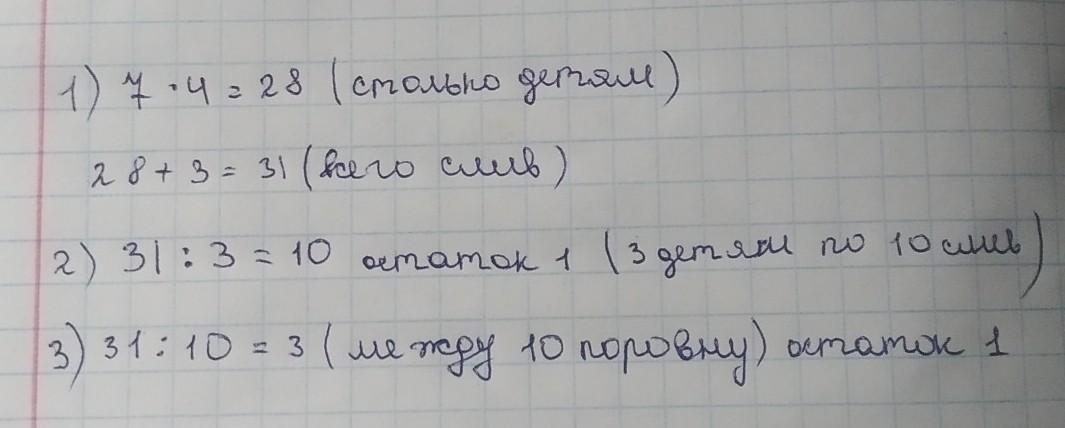 1) 7 · 4 = 28 (столько детям)
28 + 3 = 31 (всего слив)
2) 31 : 3 = 10 остаток 1 (3 детям по 10 слив)
3) 31 : 10 = 3 (между 10 поровну) остаток 1